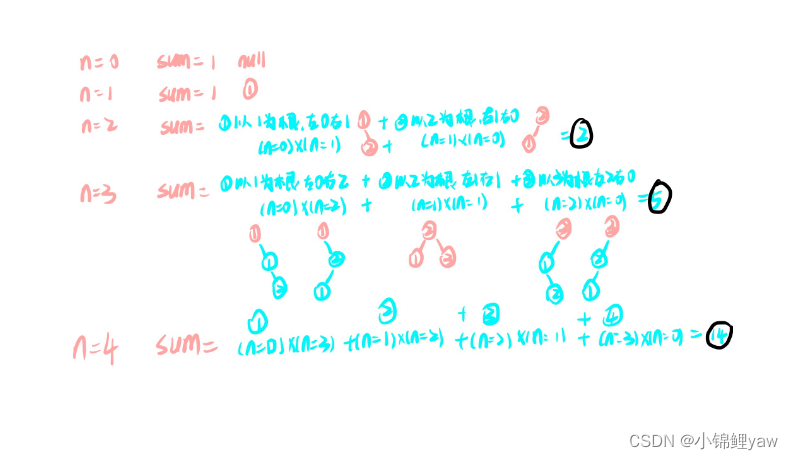 n=0 sum=1 null
n=1 sum=1 ①
n=2 sum= ①以1为根,左0右1 ① + ②以2为根,右1右0 ②
(n=0)×(n=1) ② + (n=1)×(n=0) ① =②
n=3 sum= ①以1为根 左0右2 + ②以2为根 左1右1 + ③以3为根左2右0
(n=0)×(n=2) + (n=1)×(n=1) + (n=2)×(n=0) =⑤
① ① ② ③ ③
① ② ① ③ ① ②
③ ① ② ①
① ② + ③ + ④
n=4 sum= (n=0)×(n=3) +(n=1)×(n=2) +(n=2)×(n=1) + (n=3)×(n=0) = ⑭
CSDN @小锦鲤yaw